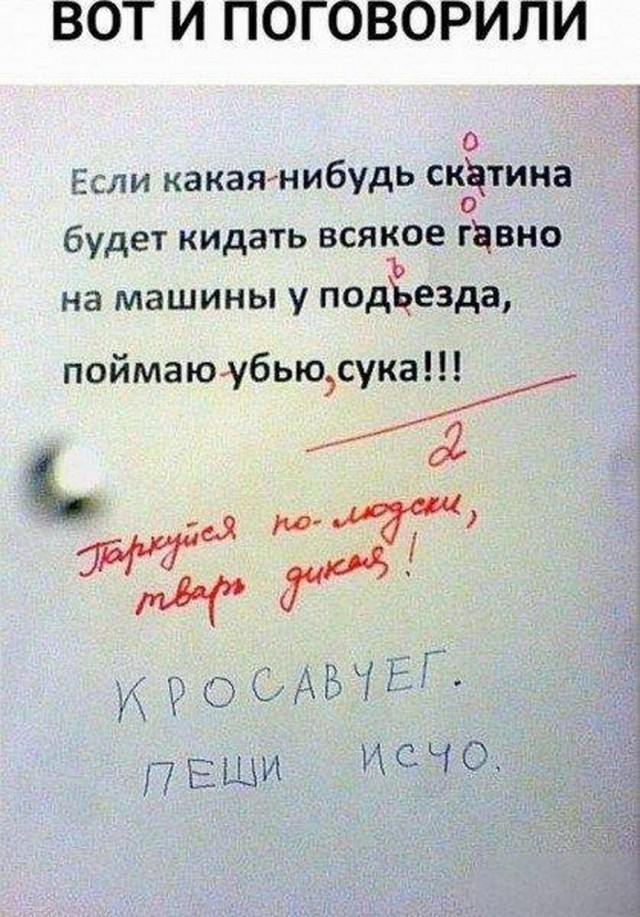 ВОТ И ПОГОВОРИЛИ
о
Если какая-нибудь скатина
о
будет кидать всякое гавно
ъ
на машины у подьезда,
поймаю-убью, сука!!!
2
Паркуйся по-людски,
тварь дикая!
КРОСАВЧЕГ.
ПЕШИ ИСЧО.